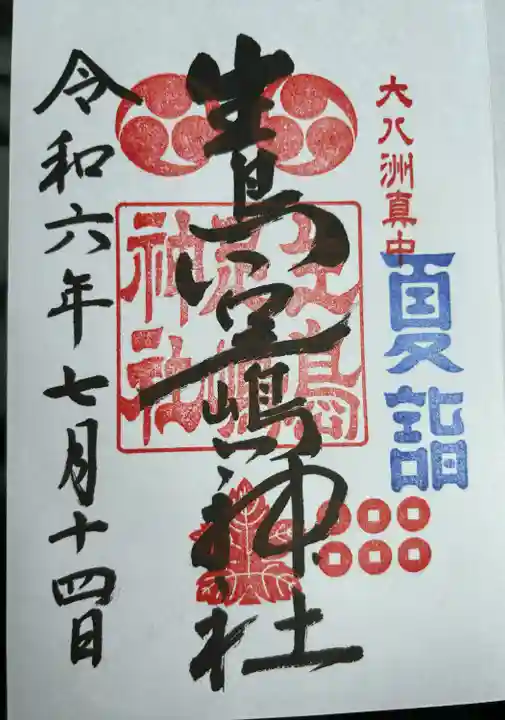 大八洲真中
夏詣
生島足嶋神社
生島足嶋神社
令和六年七月十四日